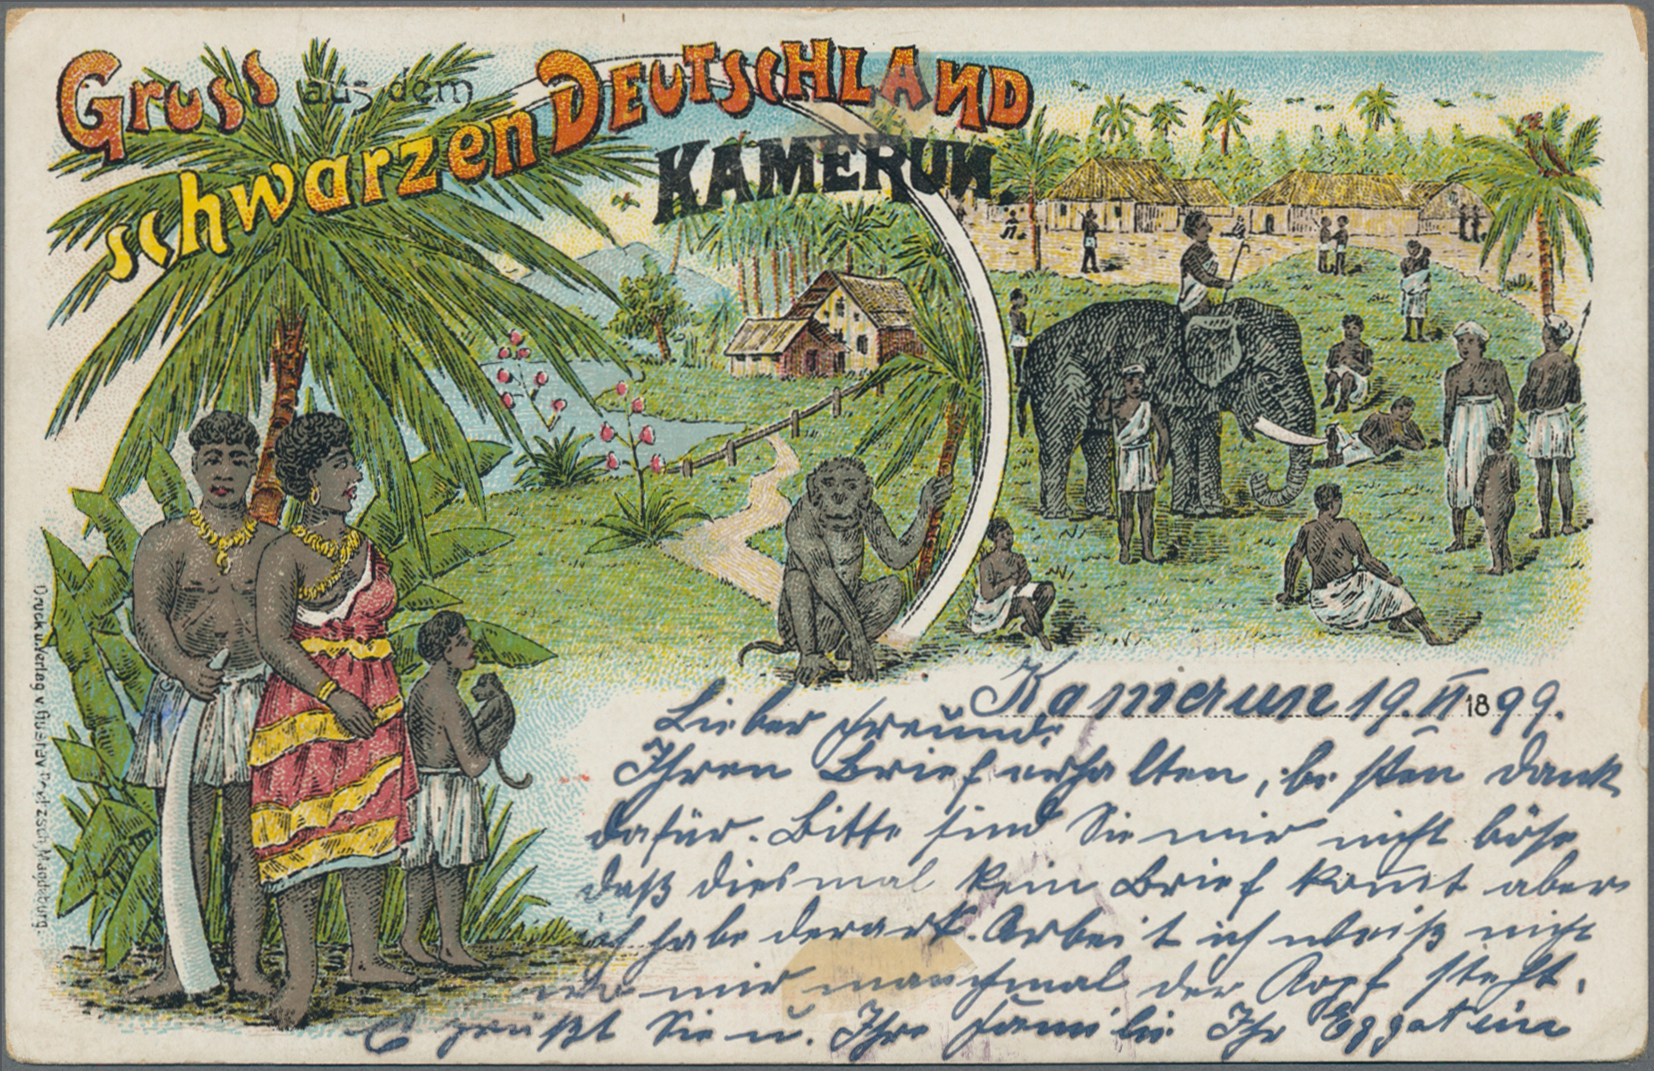 Gruss aus dem
schwarzen DEUTSCHLAND
KAMERUN.
Kamerun 19. VI 1899.
Lieber Freund!
Ihren Brief erhalten, besten Dank
dafür. Bitte sind Sie mir nicht böse
daß diesmal kein Brief komt aber
ich habe derart. Arbeit ich weiß nicht
wo mir manchmal der Kopf steht.
Es grüßt Sie u. Ihre Familie Ihr
Druck u. Verlag v. Magdeburg.